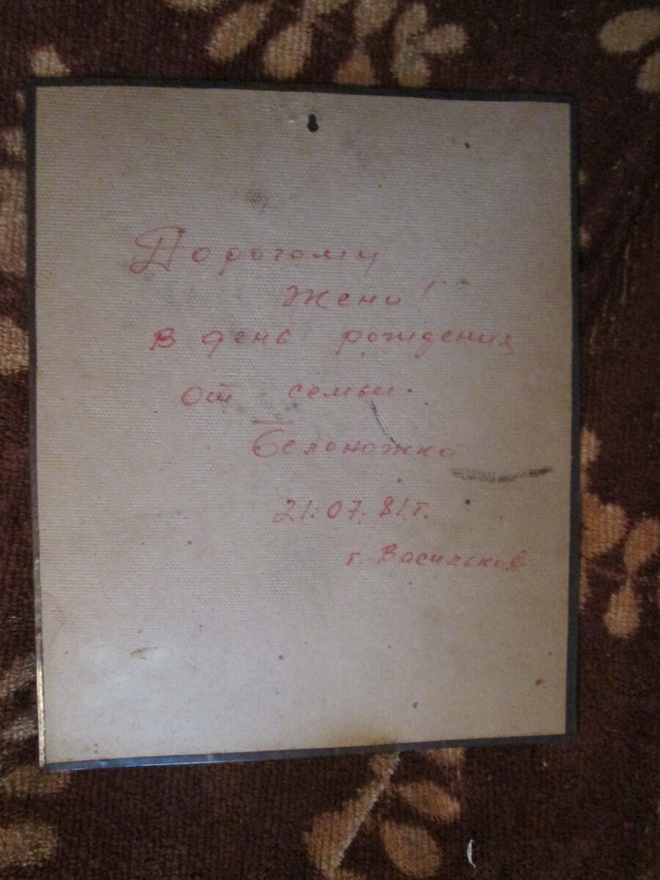 Дорогому
Жени!
в день рождения
от семьи
Белоножко
21.07.81г.
г. Васильков